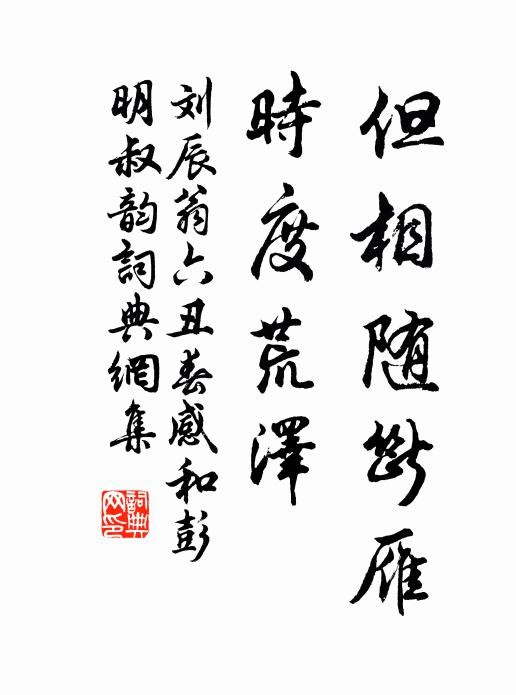 但相随断雁
時度荒澤
刘辰翁六丑春感和彭
明叔韵詞典網集
詞典網印